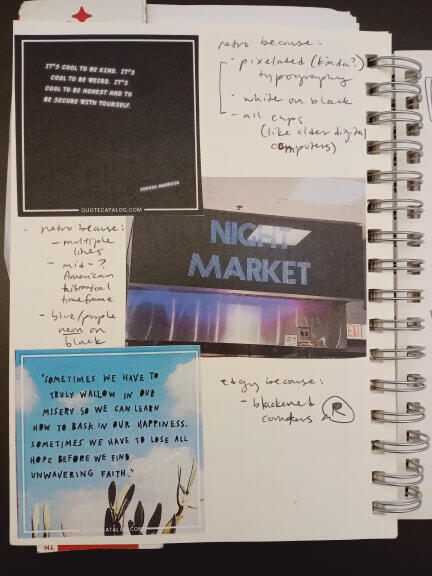 IT'S COOL TO BE KIND. IT'S
COOL TO BE WEIRD. IT'S
COOL TO BE HONEST AND TO
BE SECURE WITH YOURSELF.
QUOTECATALOG.COM
retro because:
- pixelated (kinda?)
typography
- white on black
- all caps
(like older digital
computers)
- retro because:
- multiple
lines
- mid - ?
American
historical
timeframe
- blue/purple
neon on
black
NIGHT
MARKET
EXIT
"SOMETIMES WE HAVE TO
TRULY WALLOW IN OUR
MISERY SO WE CAN LEARN
HOW TO BASK IN OUR HAPPINESS.
SOMETIMES WE HAVE TO LOSE ALL
HOPE BEFORE WE FIND
UNWAVERING FAITH."
QUOTECATALOG.COM
edgy because:
- blackened
counters R
TM